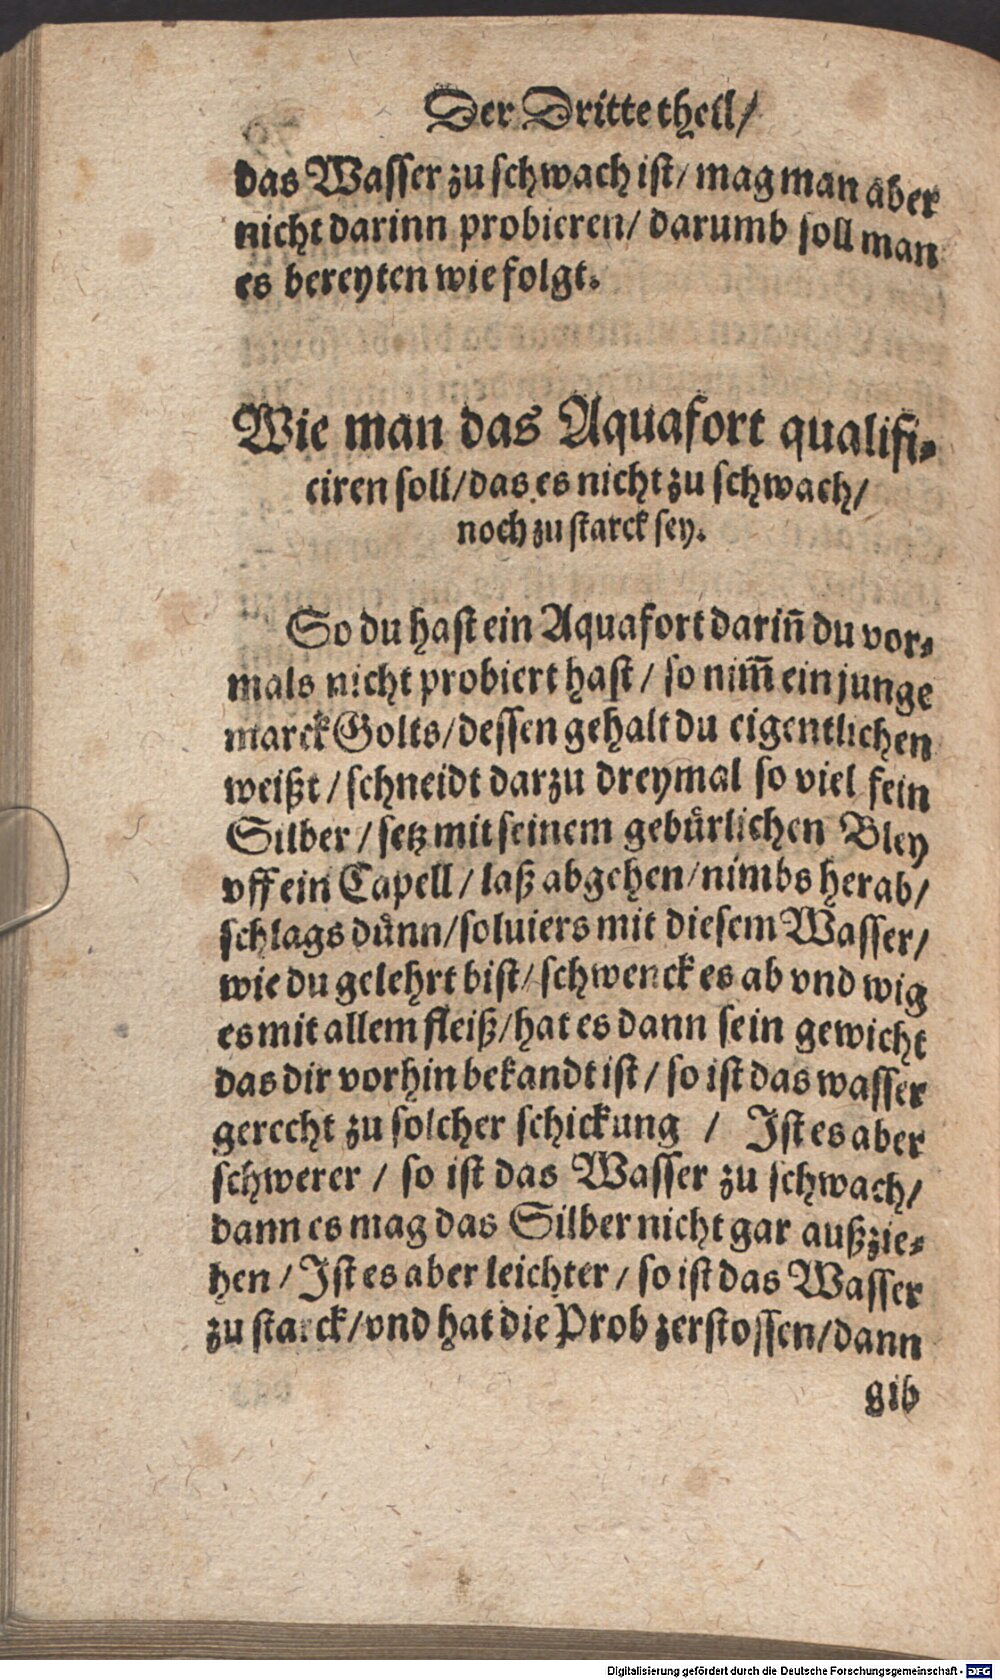 Der Dritte theil/
das Wasser zu schwach ist/ mag man aber
nicht darinn probieren/ darumb soll man
es bereyten wie folgt.
Wie man das Aquafort qualifi-
ciren soll/ das es nicht zu schwach/
noch zu starck sey.
So du hast ein Aquafort dariñ du vor-
mals nicht probiert hast/ so nim̄ ein junge
marck Golts/ dessen gehalt du eigentlichen
weißt/ schneidt darzu dreymal so viel fein
Silber/ setz mit seinem gebürlichen Bley
vff ein Capell/ laß abgehen/ nimbs herab/
schlags dünn/ soluiers mit diesem Wasser/
wie du gelehrt bist/ schwenck es ab vnd wig
es mit allem fleiß/ hat es dann sein gewicht
das dir vorhin bekandt ist/ so ist das wasser
gerecht zu solcher schickung / Ist es aber
schwerer/ so ist das Wasser zu schwach/
dann es mag das Silber nicht gar außzie-
hen/ Ist es aber leichter/ so ist das Wasser
zu starck/ vnd hat die Prob zerstossen/ dann
gib
Digitalisierung gefördert durch die Deutsche Forschungsgemeinschaft - DFG